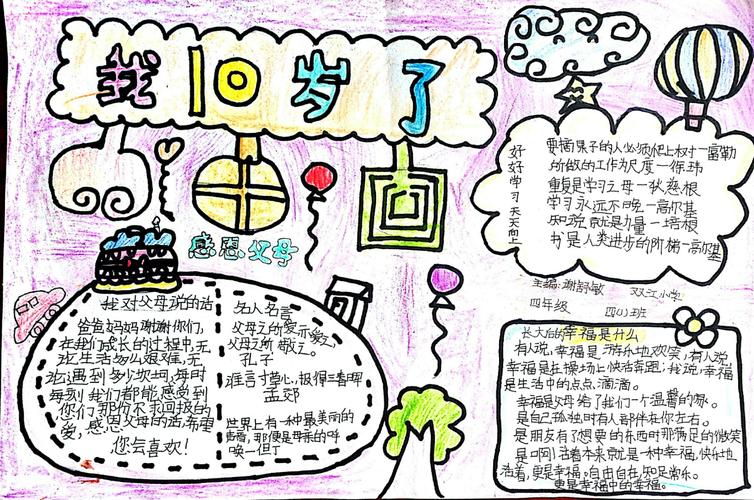 我10岁了
好好学习天天向上
要摘果子的人必须爬上树一富勒
所做的工作为尺度一徐玮
重复是学习之母一狄慈根
学习永远不晚一高尔基
知识就是力量一培根
书是人类进步的阶梯一高尔基
感恩父母
主编:谢舒敏 双江小学
四年级 四(1)班
我对父母说的话
爸爸妈妈谢谢你们,
在我们成长的过程中,无
论生活多么艰难,无
论遇到多少坎坷,每时
每刻我们都能感受到
您们那份不求回报的
爱,感恩父母的话希望
您会喜欢!
名人名言
父母之所爱亦爱之
父母之所敬之。
孔子
谁言寸草心,报得三春晖
孟郊
世界上有一种最美丽的
声音,那便是母亲的呼
唤一但丁
长大后的幸福是什么
有人说,幸福是游乐地欢笑;有人说
幸福是在操场上快活奔跑;我说,幸福
是生活中的点点滴滴。
幸福是父母给了我们一个温馨的家。
是自己孤独时有人部伴在你左右。
是朋友有了想要的东西时那满足的微笑
是啊!活着本来就是一种幸福,快乐地
活着,更是幸福。自由自在,知足常乐。
更是幸福中的幸福。